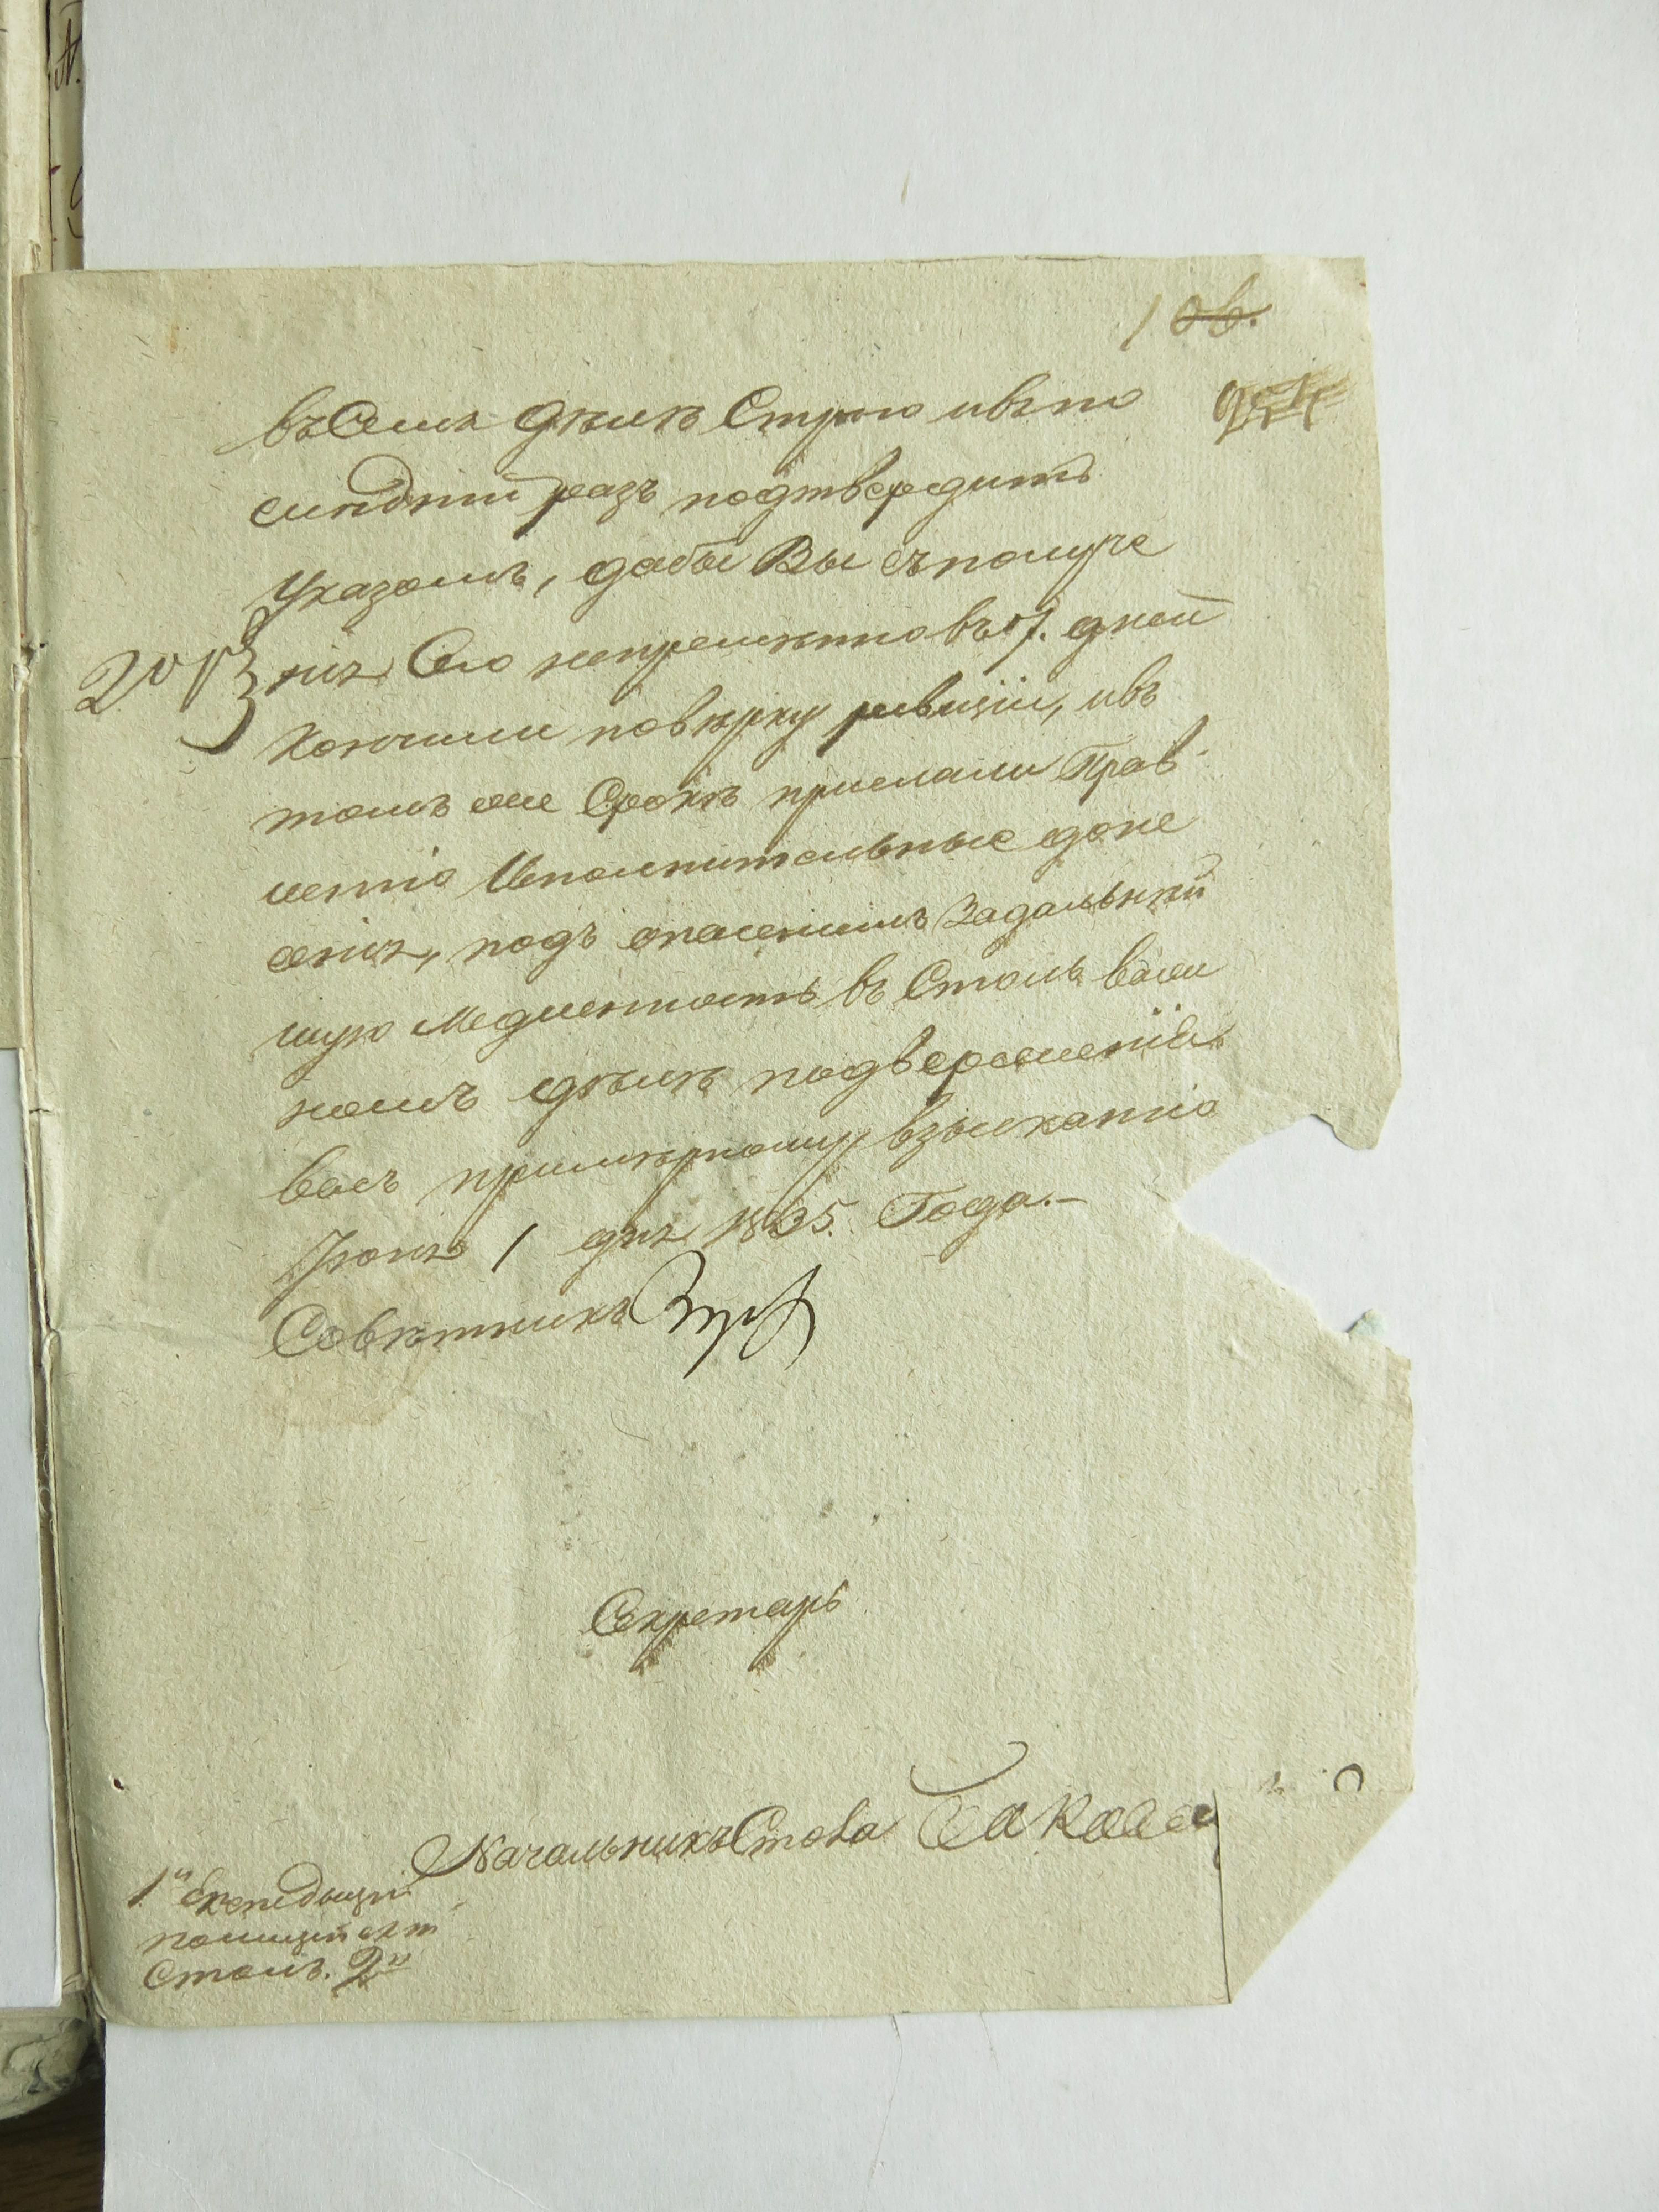 въ Семъ дѣлѣ Строго ивъпо
слѣдній разъ подтвердить
Указомъ, дабы Вы съ получе
нія Сего непремѣнно въ 7. дней
Кончили повѣрку ревизіи, ивъ
томъ же Срокѣ прислали Прав
ленію Исполнительные доне
сенія, подъ опасеніемъ Задальнѣй
шую Медленность въ Столь важ
номъ дѣлѣ подверженія
васъ примѣрному взысканію
Іюня 1 дня 1835. Года.-
Совѣтникъ
Секретарь
Начальникъ Стола
1й Експедиціи
Столъ. 2й